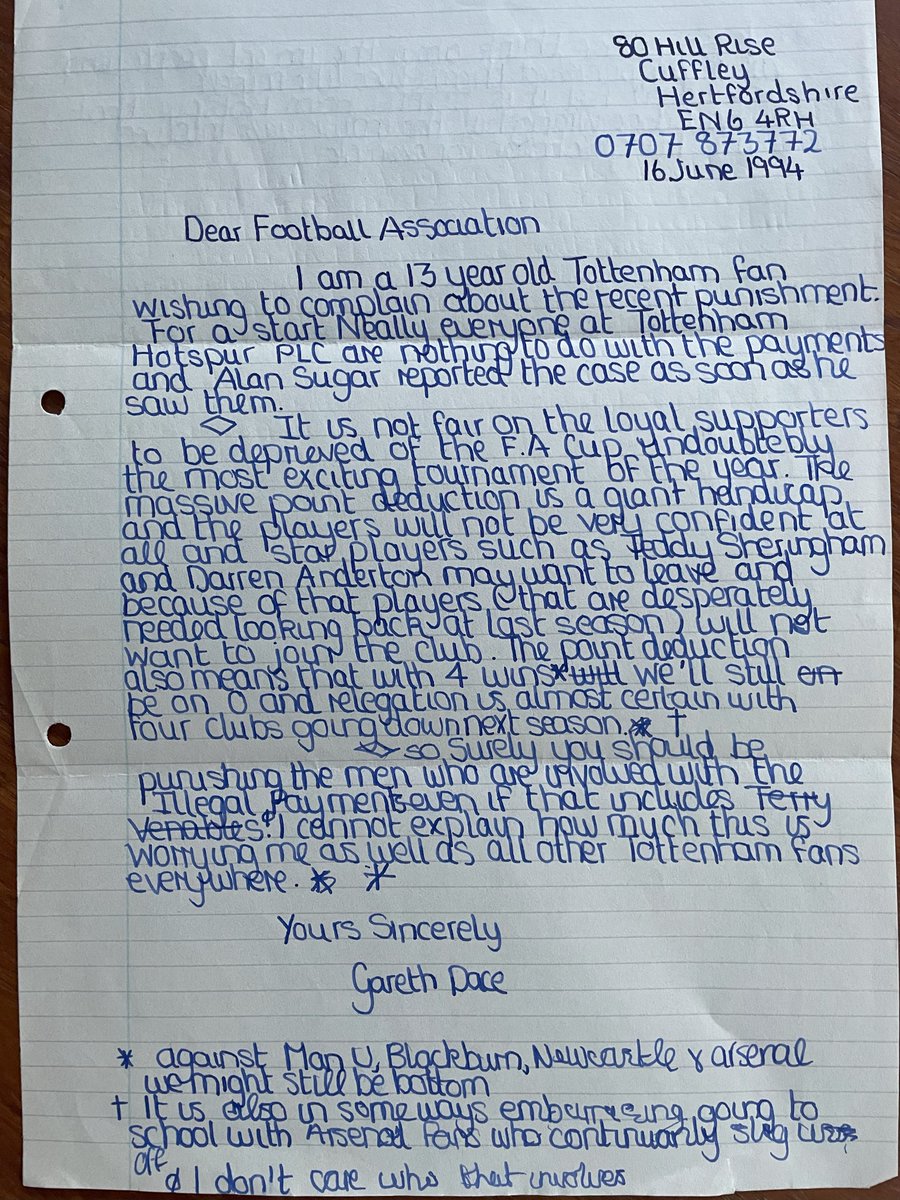 80 Hill Rise
Cuffley
Hertfordshire
EN6 4RH
0707 873772
16 June 1994
Dear Football Association
I am a 13 year old Tottenham fan
wishing to complain about the recent punishment.
For a start Neally everyone at Tottenham
Hotspur PLC are nothing to do with the payments
and Alan Sugar reported the case as soon as he
saw them.
It is not fair on the loyal supporters
to be deprieved of the F.A Cup undoubtebly
the most exciting tournament of the year. The
massive point deduction is a giant handicap
and the players will not be very confident at
all and star players such as Teddy Sheringham
and Darren Anderton may want to leave and
because of that players (that are desperately
needed looking back at last season) will not
want to join the club. The point deduction
also means that with 4 wins* will we'll still on
be on 0 and relegation is almost certain with
four clubs going down next season. * †
so surely you should be
punishing the men who are involved with the
Illegal payments even if that includes Terry
Venables! I cannot explain how much this is
worrying me as well as all other Tottenham fans
everywhere. * *
Yours Sincerely
Gareth Dace
* against Man U, Blackburn, Newcastle & arsenal
we might still be bottom
† It is also in some ways embarresing going to
school with Arsenal fans who continuarly slag us
off
ø I don't care who that involves